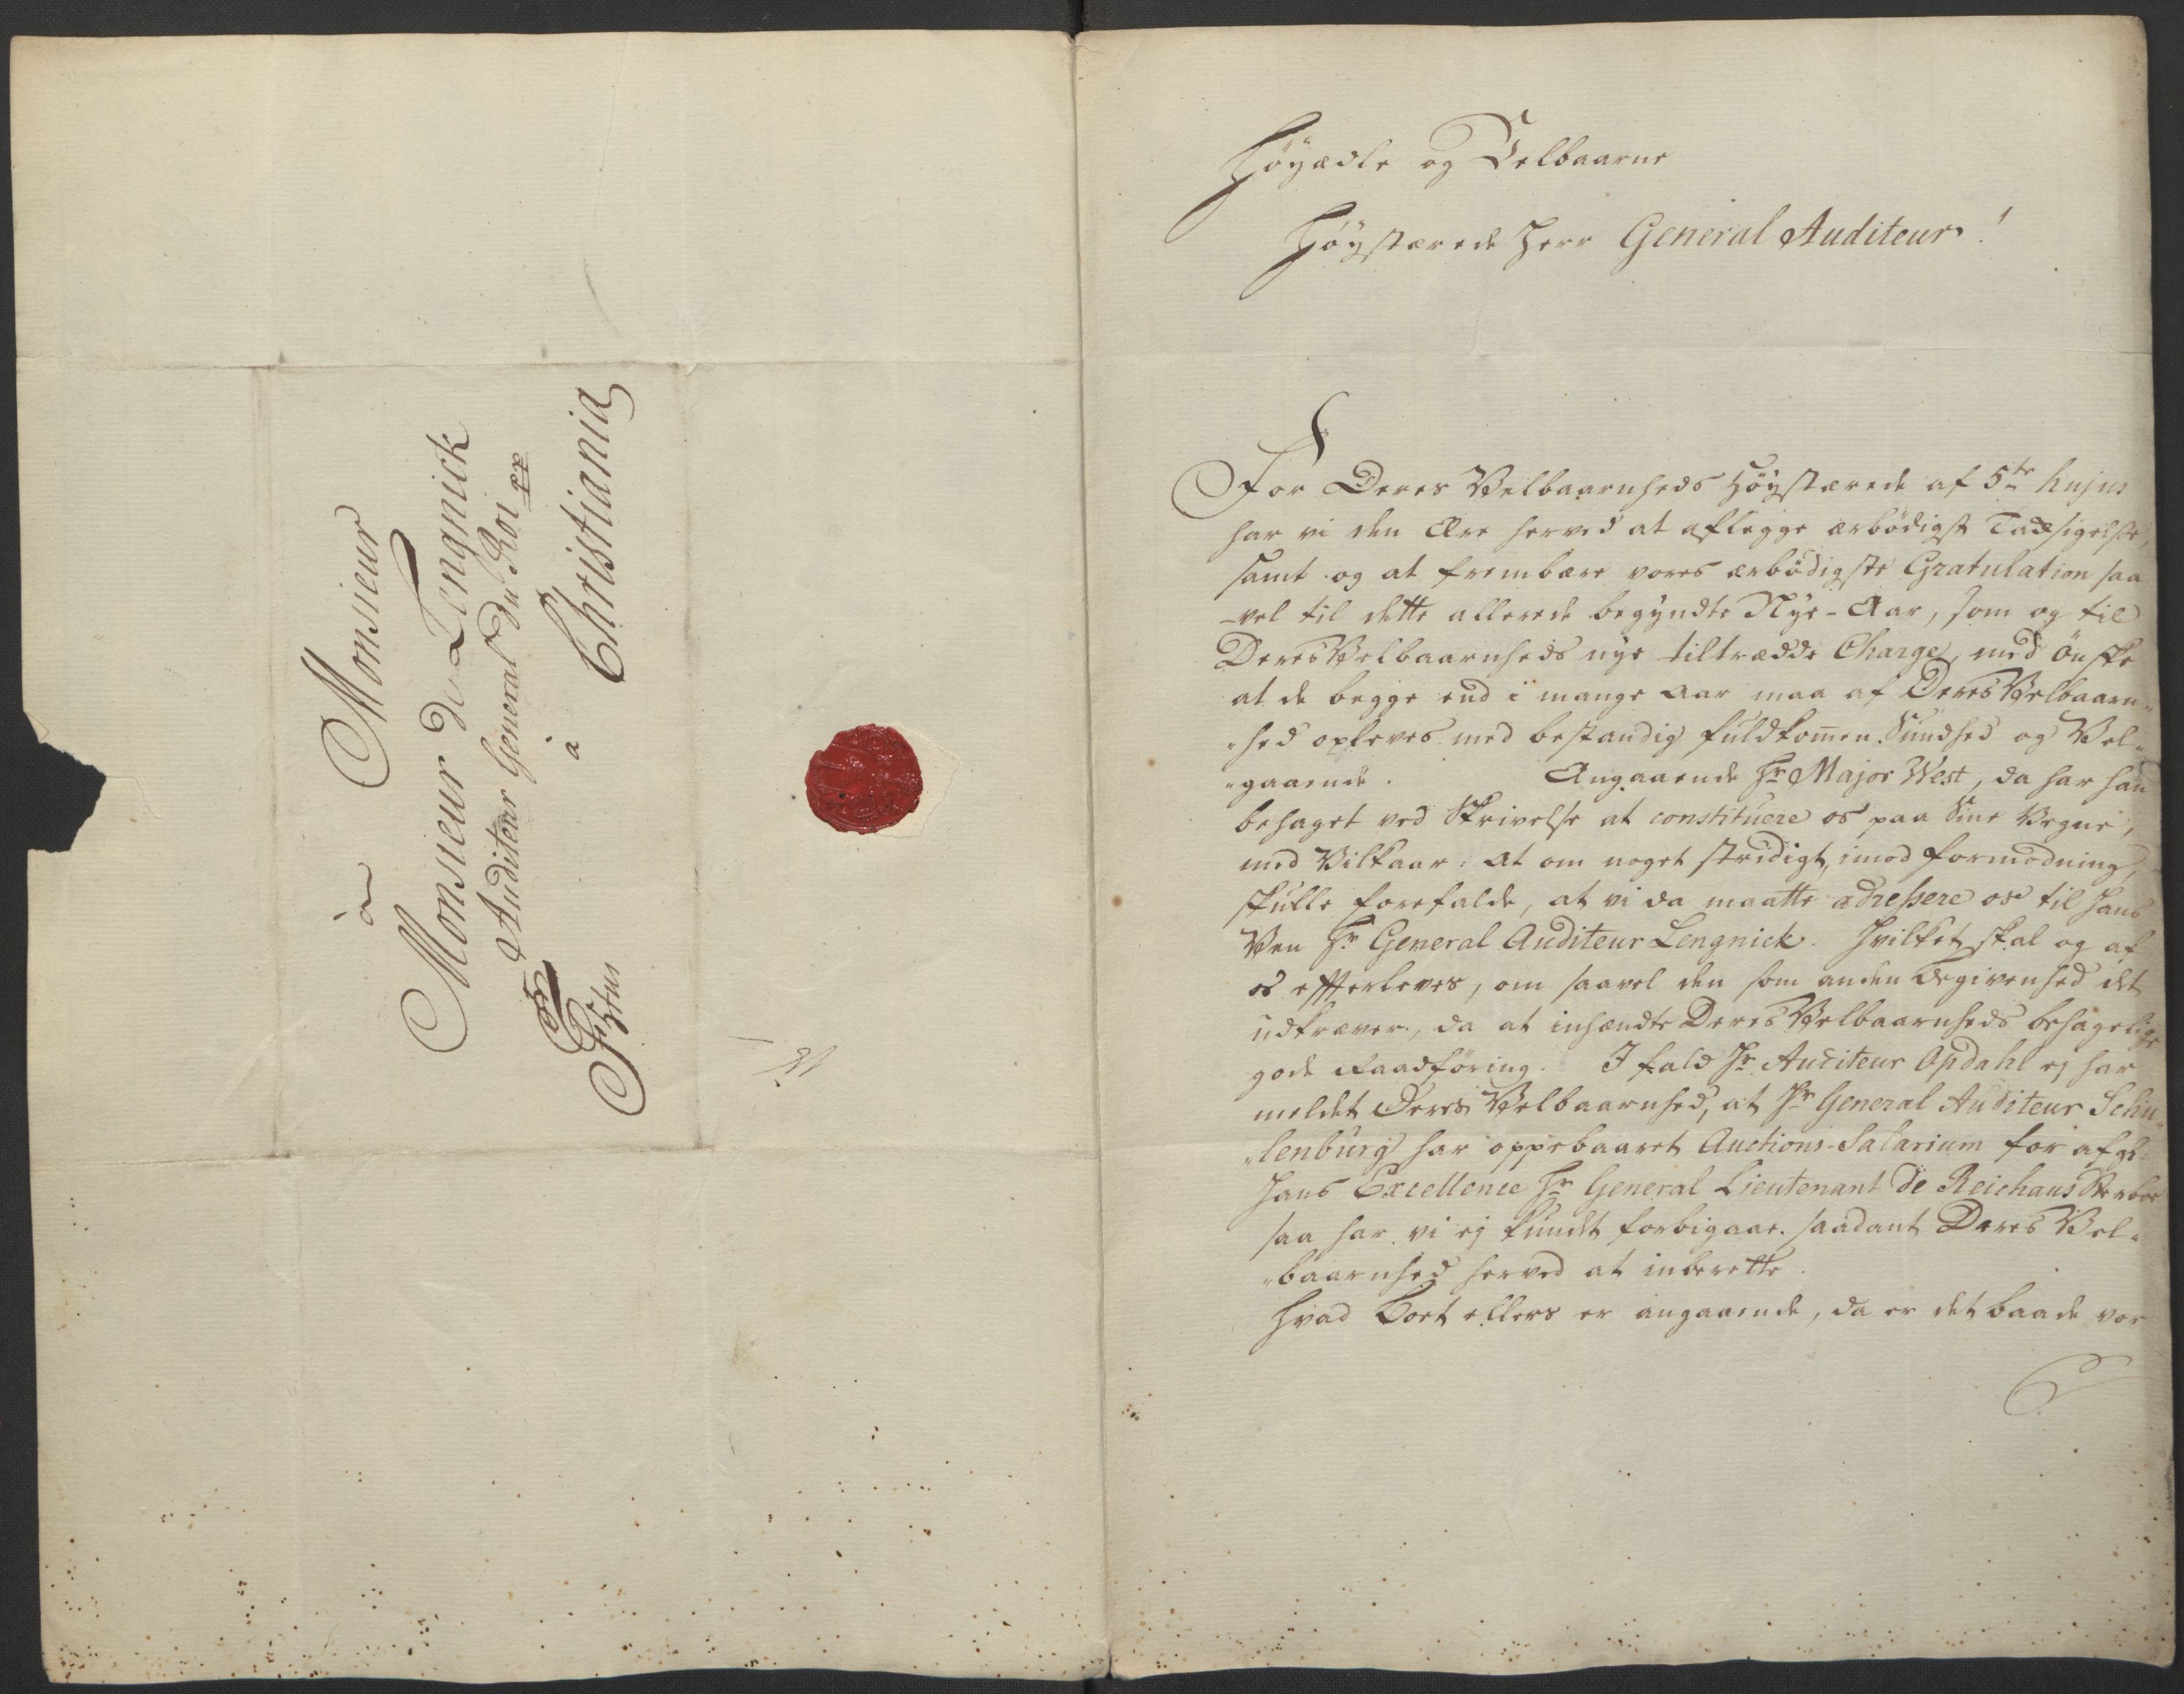 à Monsieur
Monsieur de Lengnick
Auditeur General du Roi pp
à
Christiania
Höyædle og Velbaarne
Höystærede Herr General Auditeur!
For Deres Velbaarnheds Höystærede af 5te hujus
har vi den Ære herved at aflegge ærbödigst Tacksigelse,
samt og at frembære vores ærbödigste Gratulation saa
-vel til dette allerede begyndte Nye-Aar, som og til
Deres Velbaarnheds nye tiltrædde Charge, med Önske
at de begge end i mange Aar maa af Deres Velbaarn„
„hed opleves med bestandig fuldkom̅en Sundhed og Vel„
„gaaende. Angaaende Hr Major West, da har han
behaget ved Skrivelse at constituere os paa Sine Vegne,
med Vilkaar: at om noget stridigt, imod formodning,
skulle forefalde, at vi da maatte adressere os til Hans
Ven Hr General Auditeur Lengnick. Hvilket skal og af
os efterleves, om saavel den som anden Begivenhed det
udkræver, da at inhændte Deres Velbaarnheds behagelige
gode Raadföring. I fald Hr Auditeur Opdahl ej har
meldet Deres Velbaarnhed, at Hr General Auditeur Schu„
„lenburg har oppebaaret Auctions-Salarium for afgl:
Hans Excellence Hr General Lieutenant de Reichaus Sterboe
saa har vi ej kundt forbigaae saadant Deres Vel„
„baarnhed herved at inberette.
Hvad Boet ellers er angaaende, da er det baade vor